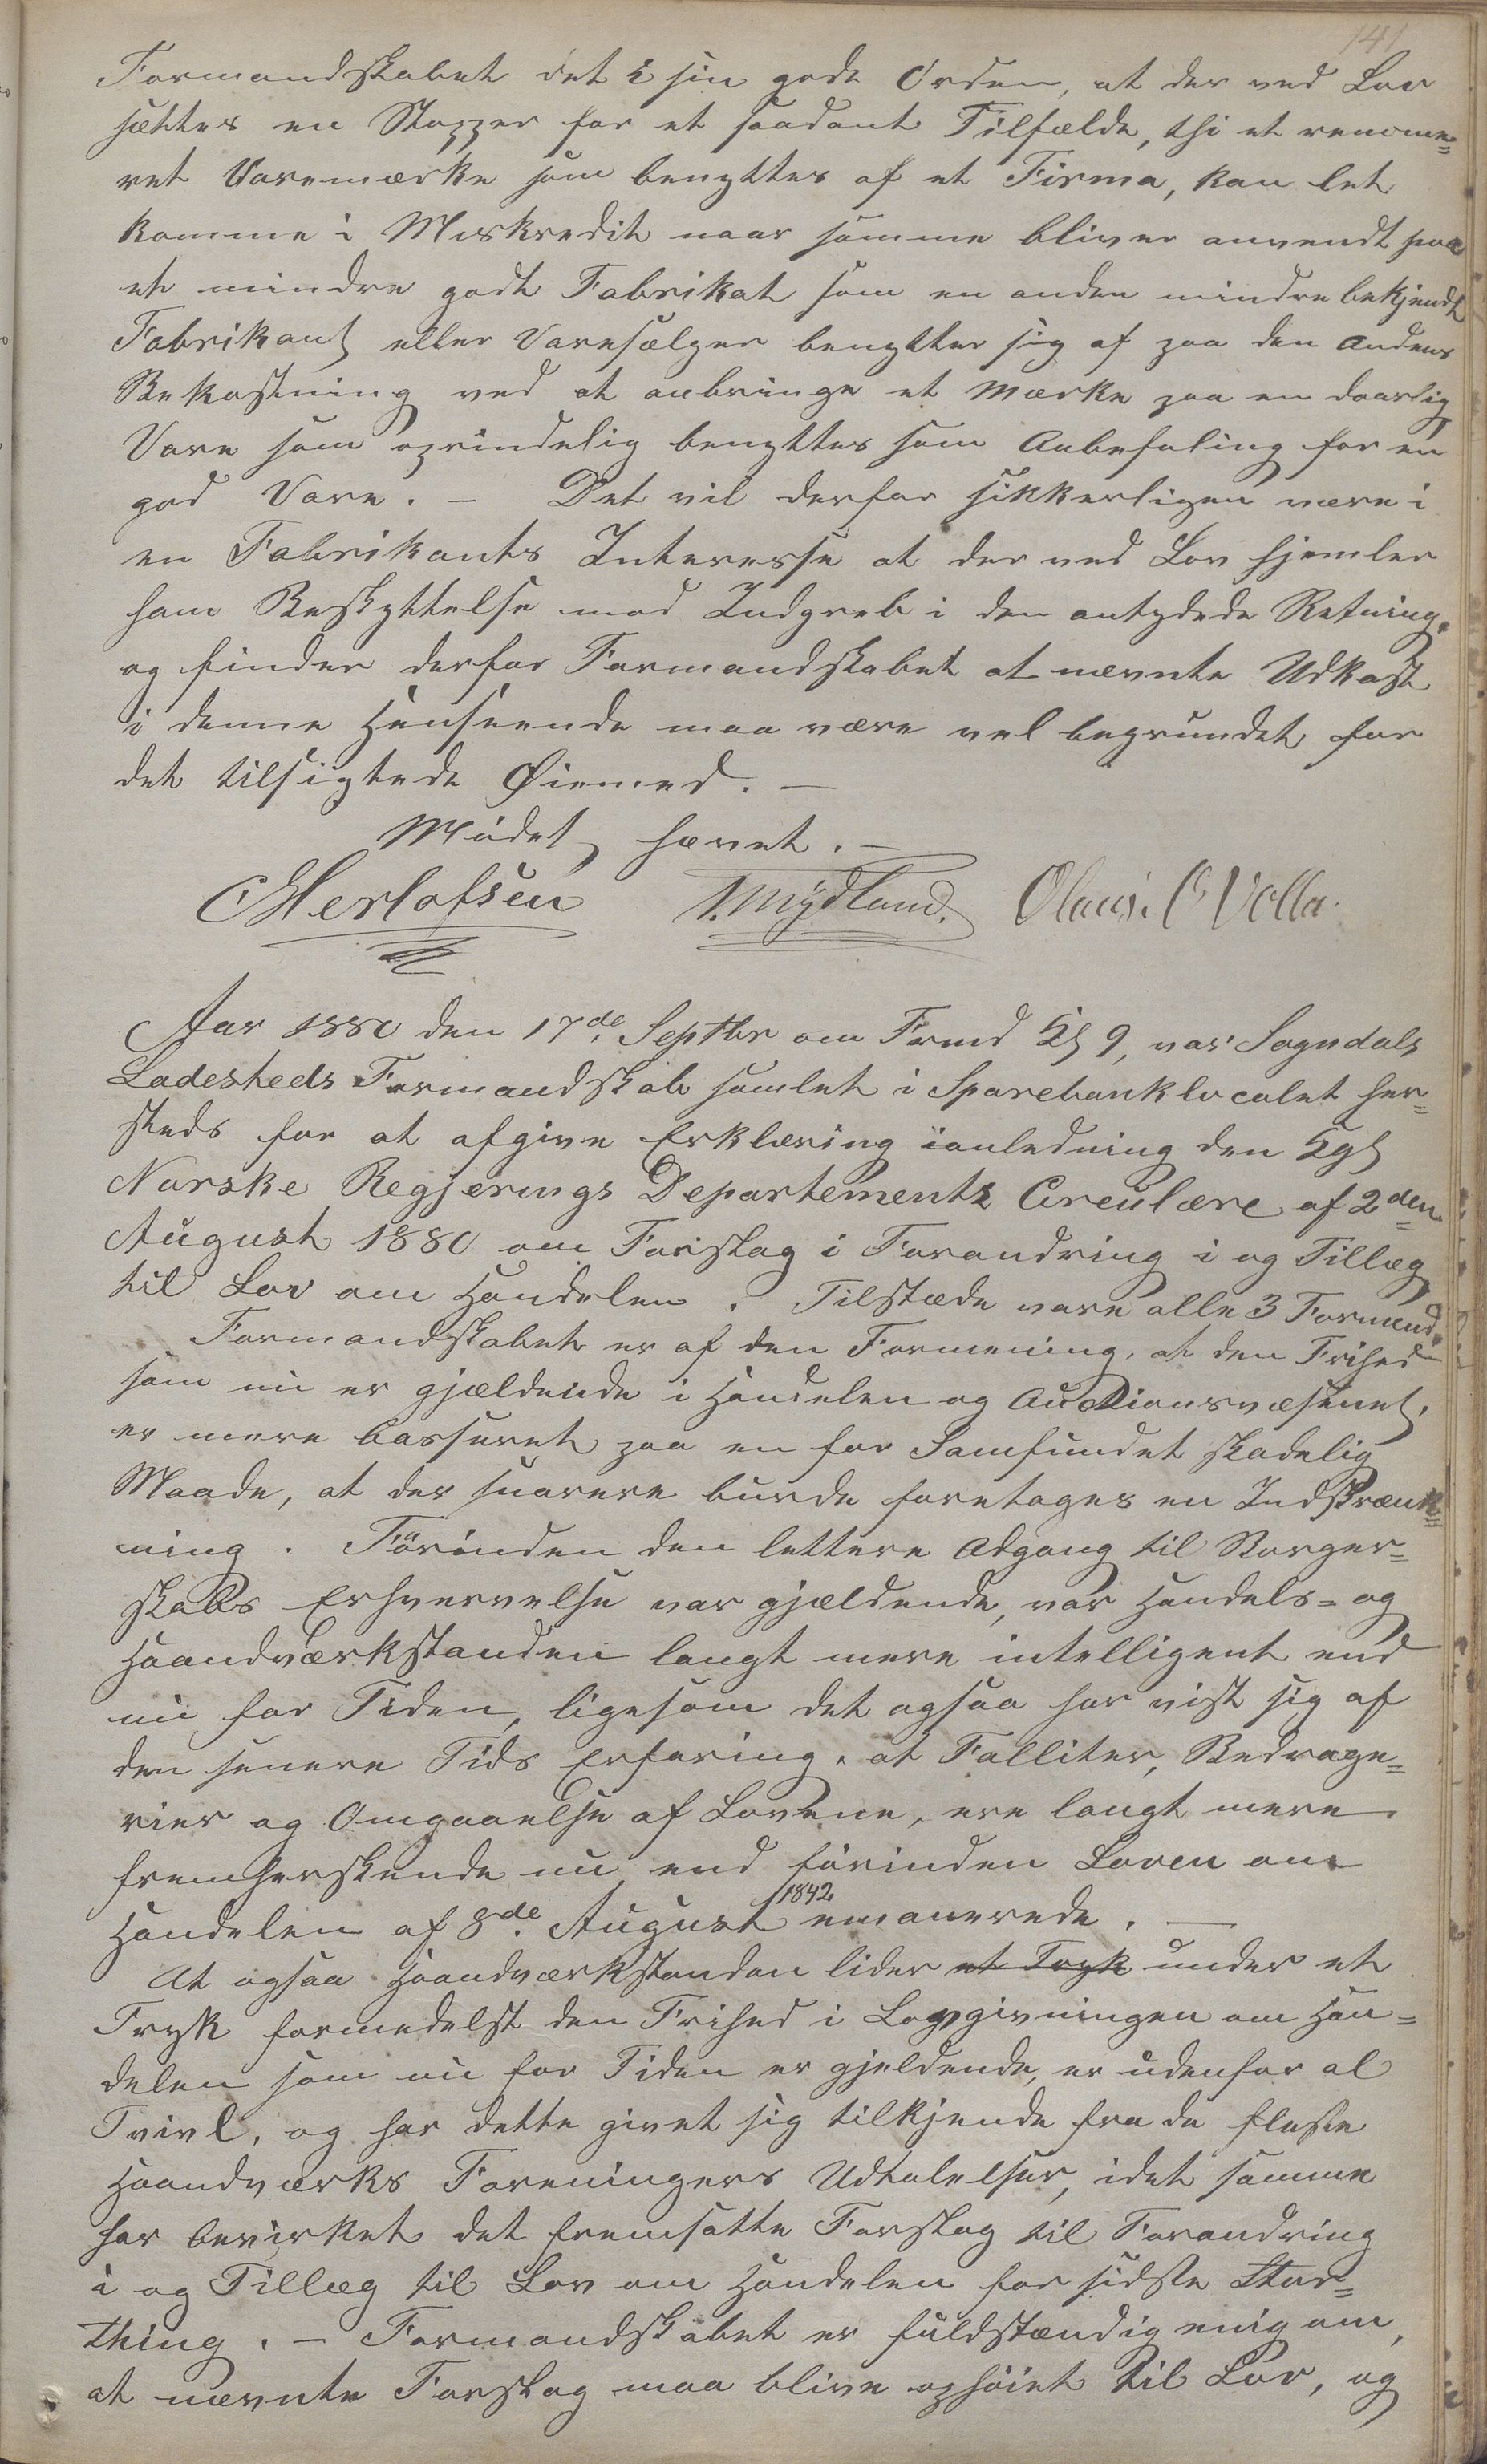 141
Formandskabet det i sin gode Orden, at der ved Lov
sættes en Stopper for et saadant Tilfælde, thi et renome=
ret Varemærke som benyttes af et Firma, kan let
komme i Miskredit naar samme bliver anvendt paa
et mindre godt Fabrikat som en anden mindre bekjendt
Fabrikant eller Varesælger benytter sig af paa den Andens
Bekostning ved at anbringe et Mærke paa en daarlig
Vare som oprindelig benyttes som Anbefaling for en
god Vare. – Det vil derfor sikkerligen være i
en Fabrikants Interesse at der ved Lov hjemler
ham Beskyttelse mod Indgreb i den antydede Retning,
og finder derfor Formandskabet at nævnte Udkast
i denne Henseende maa være vel begrundet for
det tilsigtede Øiemed. –
Mödet hævet. –
C Herlofsen T. Mydland. Olaus. C Volla.
Aar 1880 den 17de Septbr om Frmd Kl 9, var Sogndals
Ladesteds Formandskab samlet i Sparebanklocalet her=
steds for at afgive Erklæring ianledning den Kgl
Norske Regjerings Departements Circulære af 2den
August 1880 om Forslag i Forandring i og Tillæg
til Lov om Handelen. Tilstæde vare alle 3 Formænd.
Formandskabet er af den Formening, at den Frihed
som nu er gjældende i Handelen og Auctionsvæsenet,
er mere basseret paa en for Samfundet skadelig
Maade, at der snarere burde foretages en Indskrænk=
ning. Förinden den lettere Adgang til Borger=
skabs Erhvervelse var gjældende, var Handels= og
Haandværkstanden langt mere intelligent end
nu for Tiden, ligesom det ogsaa har vist sig af
den senere Tids Erfaring, at Falliter, Bedrage=
rier og Omgaaelse af Lovene, ere langt mere
fremherskende nu end förinden Loven om
Handelen af 8de August 1842 emanerede. –
At ogsaa Haandværkstanden lider et Tryk under et
Tryk formedelst den Frihed i Lovgivningen om Han=
delen som nu for Tiden er gjeldende, er udenfor al
Tvivl, og har dette givet sig tilkjende fra de fleste
Haandværks Foreningers Udtalelser, idet samme
har bevirket det fremsatte Forslag til Forandring
i og Tillæg til Lov om Handelen for sidste Stor=
thing. – Formandskabet er fuldstændig enig om,
at nævnte Forslag maa blive ophöiet til Lov, og